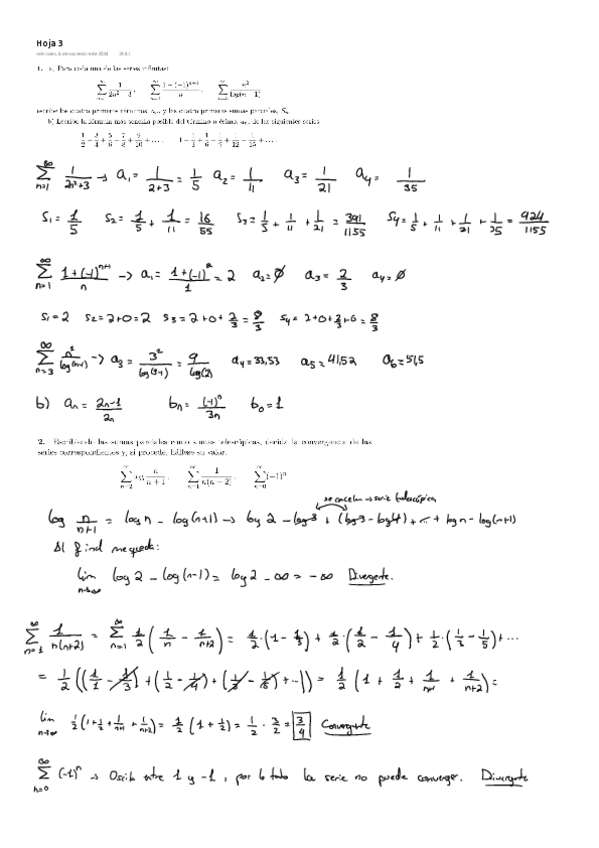 Hoja 3
1. a) Para cada una de las series infinitas:
escribe los cuatro primeros términos, aₙ, y las cuatro primeras sumas parciales, Sₙ.
b) Escribe la fórmula más sencilla posible del término n-ésimo, aₙ, de las siguientes series
1/2 + 3/4 + 5/6 + 7/8 + 9/10 + ... , 1 - 1/3 + 1/6 - 1/9 + 1/12 - 1/15 + ...
∑ₙ₌₁^∞ 1/(2n²+3) → a₁ = 1/(2+3) = 1/5 a₂ = 1/11 a₃ = 1/21 a₄ = 1/35
S₁ = 1/5 S₂ = 1/5 + 1/11 = 16/55 S₃ = 1/5 + 1/11 + 1/21 = 391/1155 S₄ = 1/5 + 1/11 + 1/21 + 1/35 = 424/1155
∑ₙ₌₁^∞ (1+(-1)ⁿ⁺¹)/n → a₁ = (1+(-1)²)/1 = 2 a₂ = 0 a₃ = 2/3 a₄ = 0
S₁ = 2 S₂ = 2+0 = 2 S₃ = 2+0+2/3 = 8/3 S₄ = 2+0+2/3+0 = 8/3
∑ₙ₌₃^∞ n²/log(n-1) → a₃ = 3²/log(3-1) = 9/log(2) a₄ = 33,53 a₅ = 41,52 a₆ = 51,5
b) aₙ = (2n-1)/2n bₙ = (-1)ⁿ/3n b₀ = 1
2. Escribiendo las sumas parciales como sumas telescópicas, decida la convergencia de las
series correspondientes y, si procede, hállese su valor.
∑ₙ₌₂^∞ log n/(n+1) , ∑ₙ₌₁^∞ 1/(n(n+2)) , ∑ₙ₌₀^∞ (-1)ⁿ
se cancelan → serie telescópica
log n/(n+1) = log n - log(n+1) → log 2 - log 3 + (log 3 - log 4) + ... + log n - log(n+1)
Al final me queda:
lim n→∞ log 2 - log(n-1) = log 2 - ∞ = -∞ Divergente.
∑ₙ₌₁^∞ 1/(n(n+2)) = ∑ₙ₌₁^∞ 1/2 (1/n - 1/(n+2)) = 1/2·(1 - 1/3) + 1/2·(1/2 - 1/4) + 1/2·(1/3 - 1/5) + ...
= 1/2 ((1/1 - 1/3) + (1/2 - 1/4) + (1/3 - 1/5) + ...)) = 1/2 (1 + 1/2 + 1/(n+1) + 1/(n+2)) =
lim n→∞ 1/2 (1 + 1/2 + 1/(n+1) + 1/(n+2)) = 1/2 (1 + 1/2) = 1/2 · 3/2 = 3/4 Convergente
∑ₙ₌₀^∞ (-1)ⁿ → Oscila entre 1 y -1, por lo tanto la serie no puede converger. Divergente